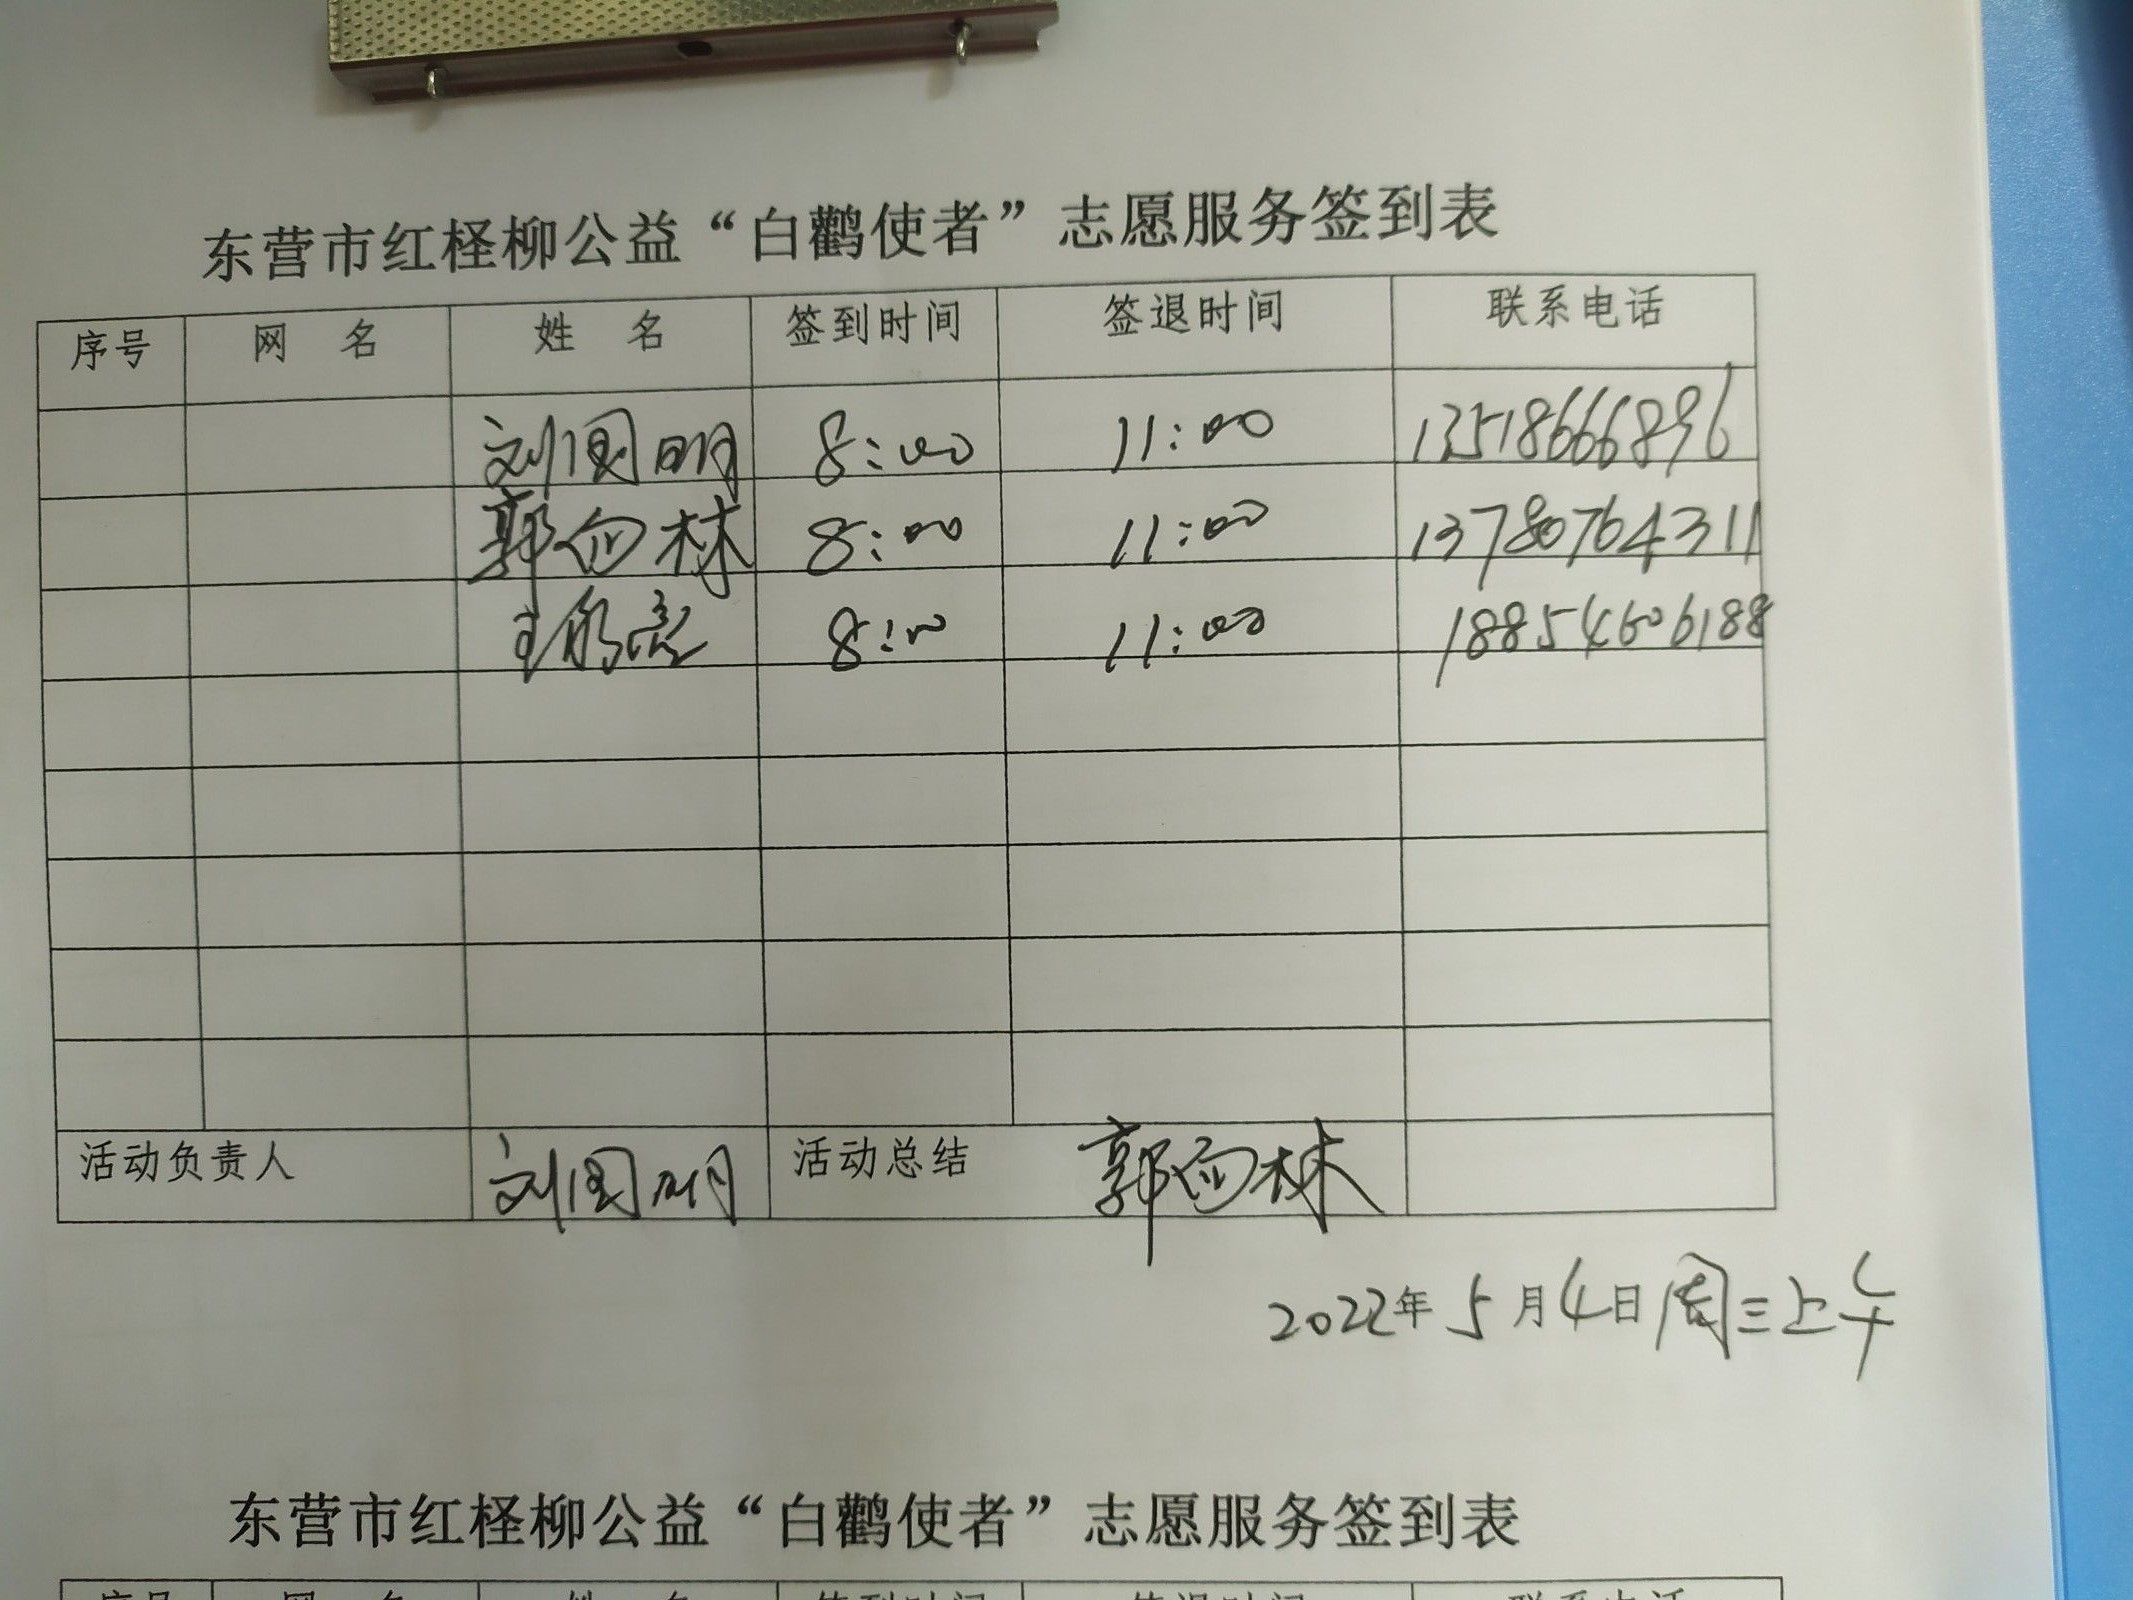 东营市红柽柳公益“白鹳使者”志愿服务签到表
序号 网 名 姓 名 签到时间 签退时间 联系电话
刘国明 8:00 11:00 13518666896
郭向林 8:00 11:00 13780764311
王 8:00 11:00 18854606188
活动负责人 刘国明 活动总结 郭向林
2022年5月4日周三上午
东营市红柽柳公益“白鹳使者”志愿服务签到表
序号 网 名 姓 名 签到时间 签退时间 联系电话